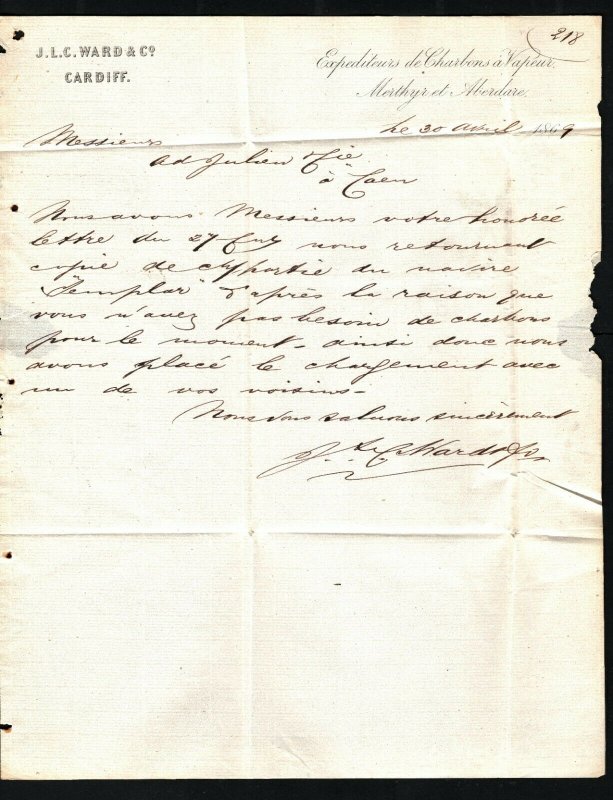 218
J.L.C. WARD & Co.
CARDIFF.
Expediteurs de Charbons à Vapeur,
Merthyr et Aberdare.
Le 30 Avril 1869
Messieurs
Ad Julien & Cie
à Caen
Nous avons Messieurs votre honorée
lettre du 27 nous retournant
copie de ch/partie du navire
"Templar" d'après la raison que
vous n'avez pas besoin de charbons
pour le moment - ainsi donc nous
avons placé le chargement avec
un de vos voisins -
Nous vous saluons sincèrement
J.L.C. Ward & Co.